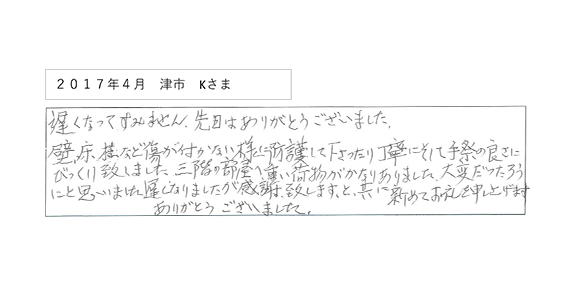 2017年4月　津市　Kさま
遅くなってすみません。先日はありがとうございました。
壁、床、柱など傷が付かない様に防護して下さったり丁寧にそして手際の良さに
びっくり致しました。三階の部屋へ重い荷物がかなりありました。大変だったろう
にと思いました。遅くなりましたが感謝致しますと、共に新めてお礼を申し上げます
ありがとうございました。